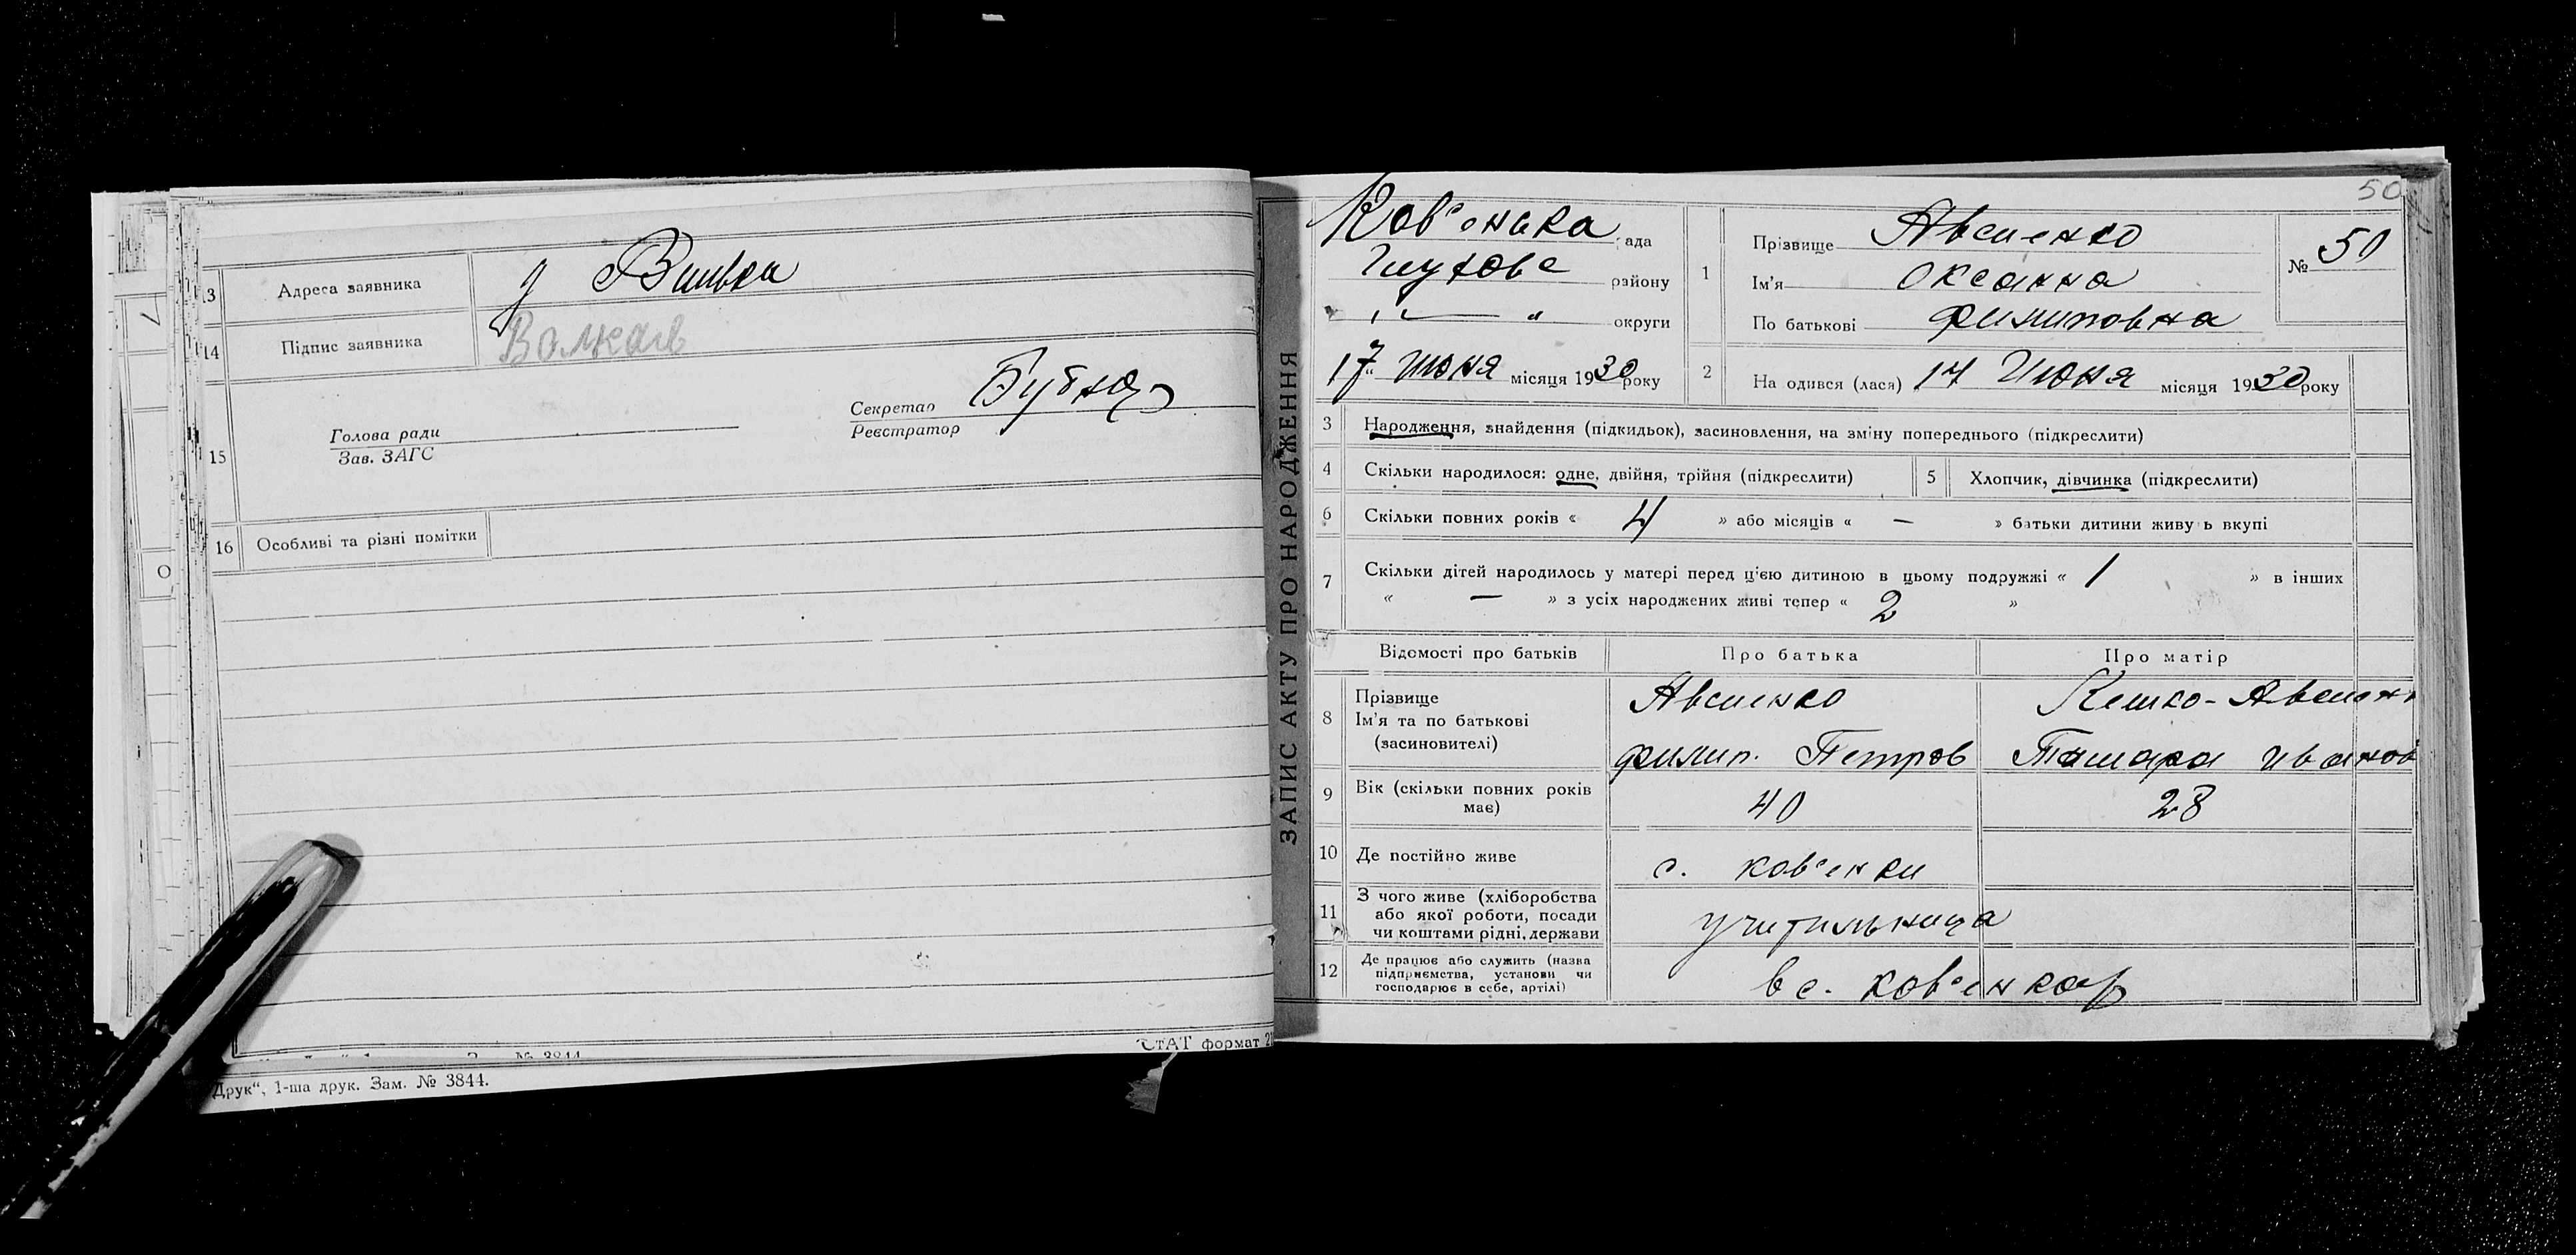 13 Адреса заявника
14 Підпис заявника
Секретар
Реєстратор
15 Голова ради
Зав. ЗАГС
16 Особливі та різні помітки
О
СтАТ формат
Друк“, 1-ша друк. Зам. № 3844.
ЗАПИС АКТУ ПРО НАРОДЖЕННЯ
50
Ков'енька рада
району
" — " округи
17 июня місяця 1930 року
1 Прізвище Авсиенко № 50
Ім'я Оксанна
По батькові Филиповна
2 На одився (лася) 14 Июня місяця 1930 року
3 Народження, знайдення (підкидьок), засиновлення, на зміну попереднього (підкреслити)
4 Скільки народилося: одне, двійня, трійня (підкреслити) 5 Хлопчик, дівчинка (підкреслити)
6 Скільки повних років « 4 » або місяців « — » батьки дитини живу ь вкупі
7 Скільки дітей народилось у матері перед цією дитиною в цьому подружжі « 1 » в інших
« — » з усіх народжених живі тепер « 2 »
Відомості про батьків Про батька Про матір
8 Прізвище
Ім'я та по батькові
(засиновителі)
Авсиенко
Филип. Петров
Кешко-Авсиен
Тамара Иванов
9 Вік (скільки повних років має) 40 28
10 Де постійно живе с. Ков'енки
11 З чого живе (хліборобства
або якої роботи, посади
чи коштами рідні, держави
учитильница
12 Де працює або служить (назва
підприємства, установи чи
господарює в себе, артілі)
в с. Ков'енках